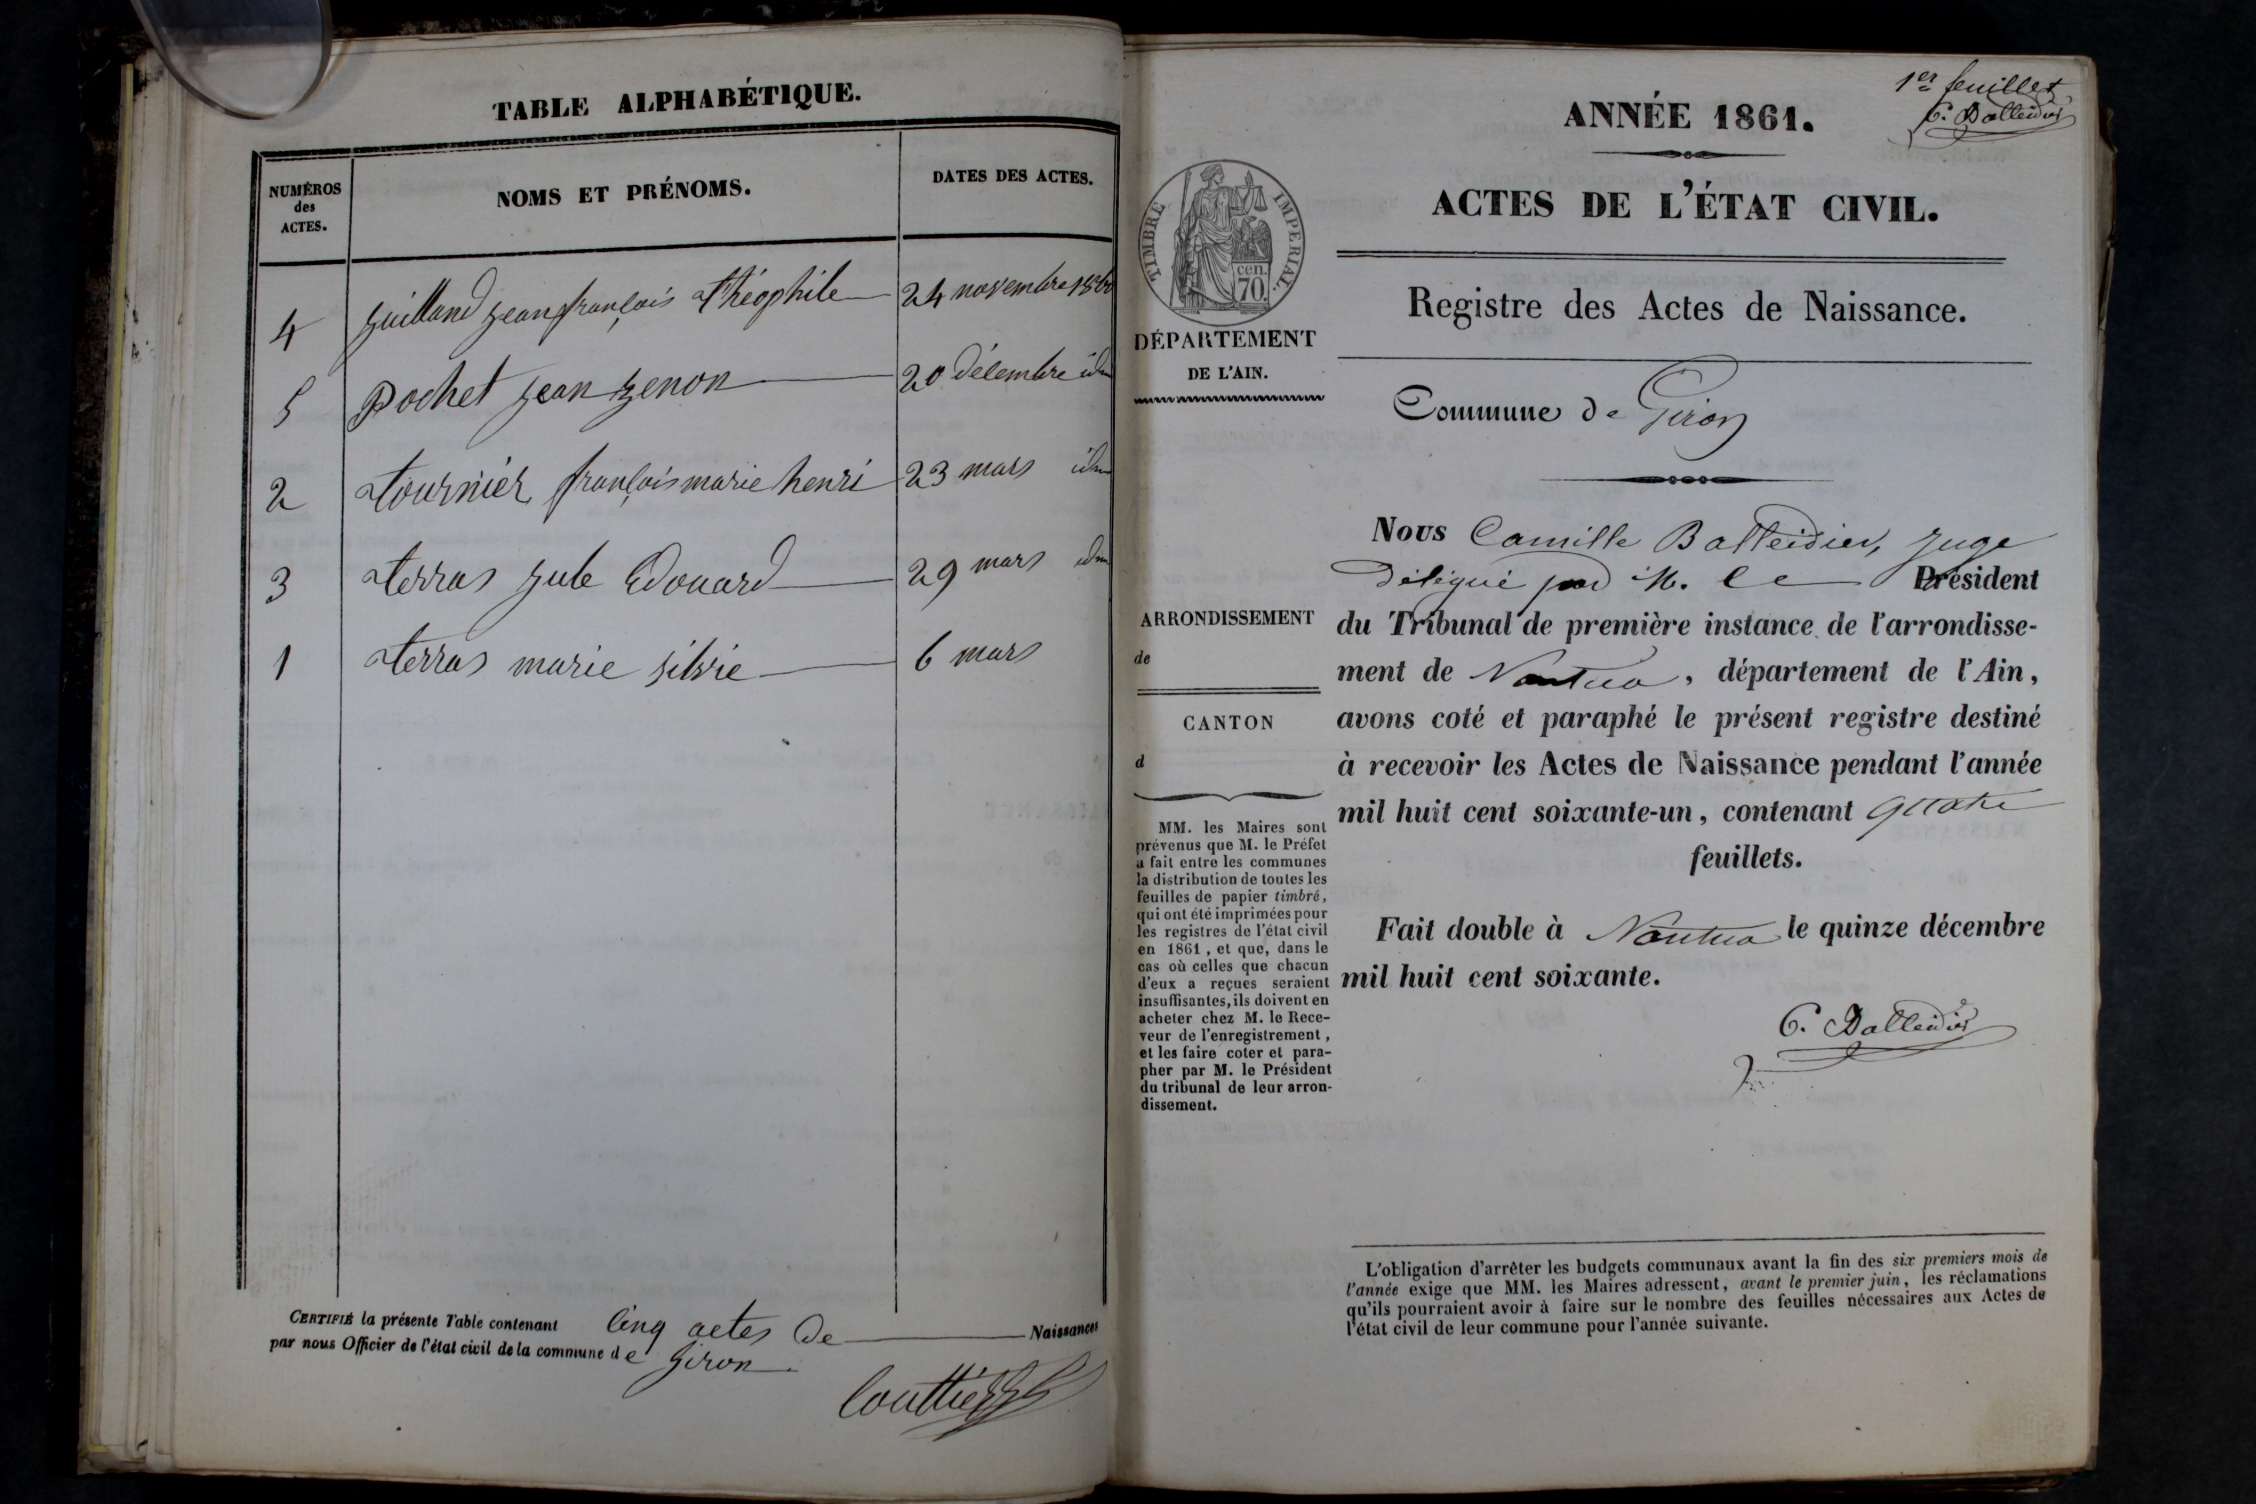 TABLE ALPHABÉTIQUE.
NUMÉROS
des
ACTES.
NOMS ET PRÉNOMS.
DATES DES ACTES.
4 guilland jean françois théophile 24 novembre 1860
5 Pochet jean zenon 20 décembre idm
2 tournier françois marie henri 23 mars idm
3 terras jule Edouard 29 mars idm
1 terras marie silvie 6 mars
CERTIFIÉ la présente Table contenant Cinq actes de Naissances
par nous Officier de l'état civil de la commune de giron
1er feuillet
C. Balleidier
ANNÉE 1861.
ACTES DE L'ÉTAT CIVIL.
Registre des Actes de Naissance.
TIMBRE IMPERIAL.
cen.
70.
DÉPARTEMENT
DE L'AIN.
Commune de Giron
ARRONDISSEMENT
de
CANTON
d
MM. les Maires sont
prévenus que M. le Préfet
a fait entre les communes
la distribution de toutes les
feuilles de papier timbré,
qui ont été imprimées pour
les registres de l'état civil
en 1861, et que, dans le
cas où celles que chacun
d'eux a reçues seraient
insuffisantes, ils doivent en
acheter chez M. le Rece-
veur de l'enregistrement,
et les faire coter et para-
pher par M. le Président
du tribunal de leur arron-
dissement.
Nous Camille Balleidier, juge
délégué par M. le Président
du Tribunal de première instance de l'arrondisse-
ment de Nantua, département de l'Ain,
avons coté et paraphé le présent registre destiné
à recevoir les Actes de Naissance pendant l'année
mil huit cent soixante-un, contenant quatre
feuillets.
Fait double à Nantua le quinze décembre
mil huit cent soixante.
C. Balleidier
L'obligation d'arrêter les budgets communaux avant la fin des six premiers mois de
l'année exige que MM. les Maires adressent, avant le premier juin, les réclamations
qu'ils pourraient avoir à faire sur le nombre des feuilles nécessaires aux Actes de
l'état civil de leur commune pour l'année suivante.